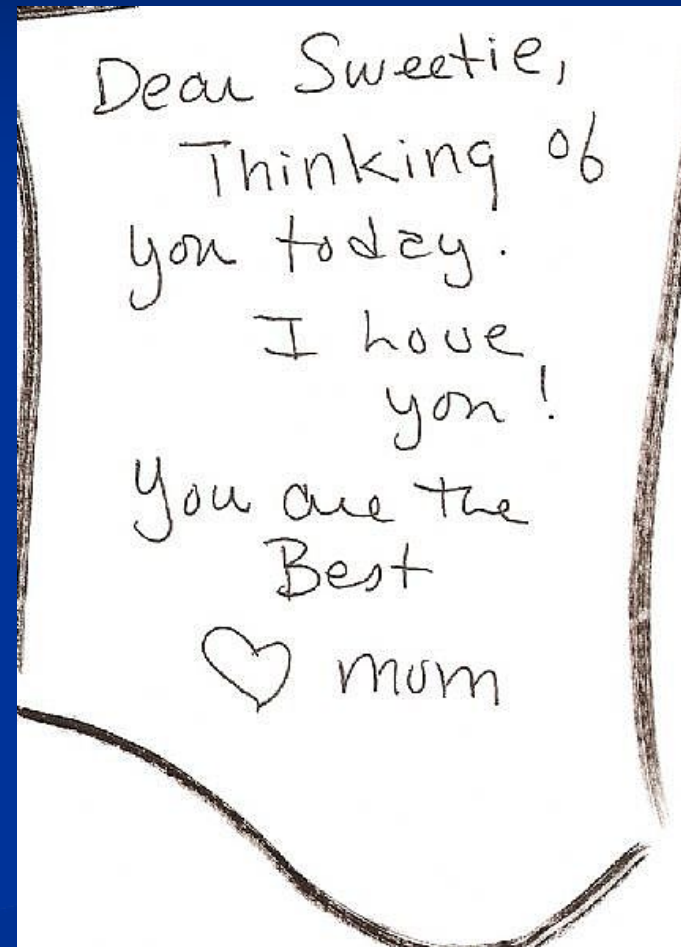 Dear Sweetie,
Thinking of
you today.
I love
you!
You are the
Best
♡ mom